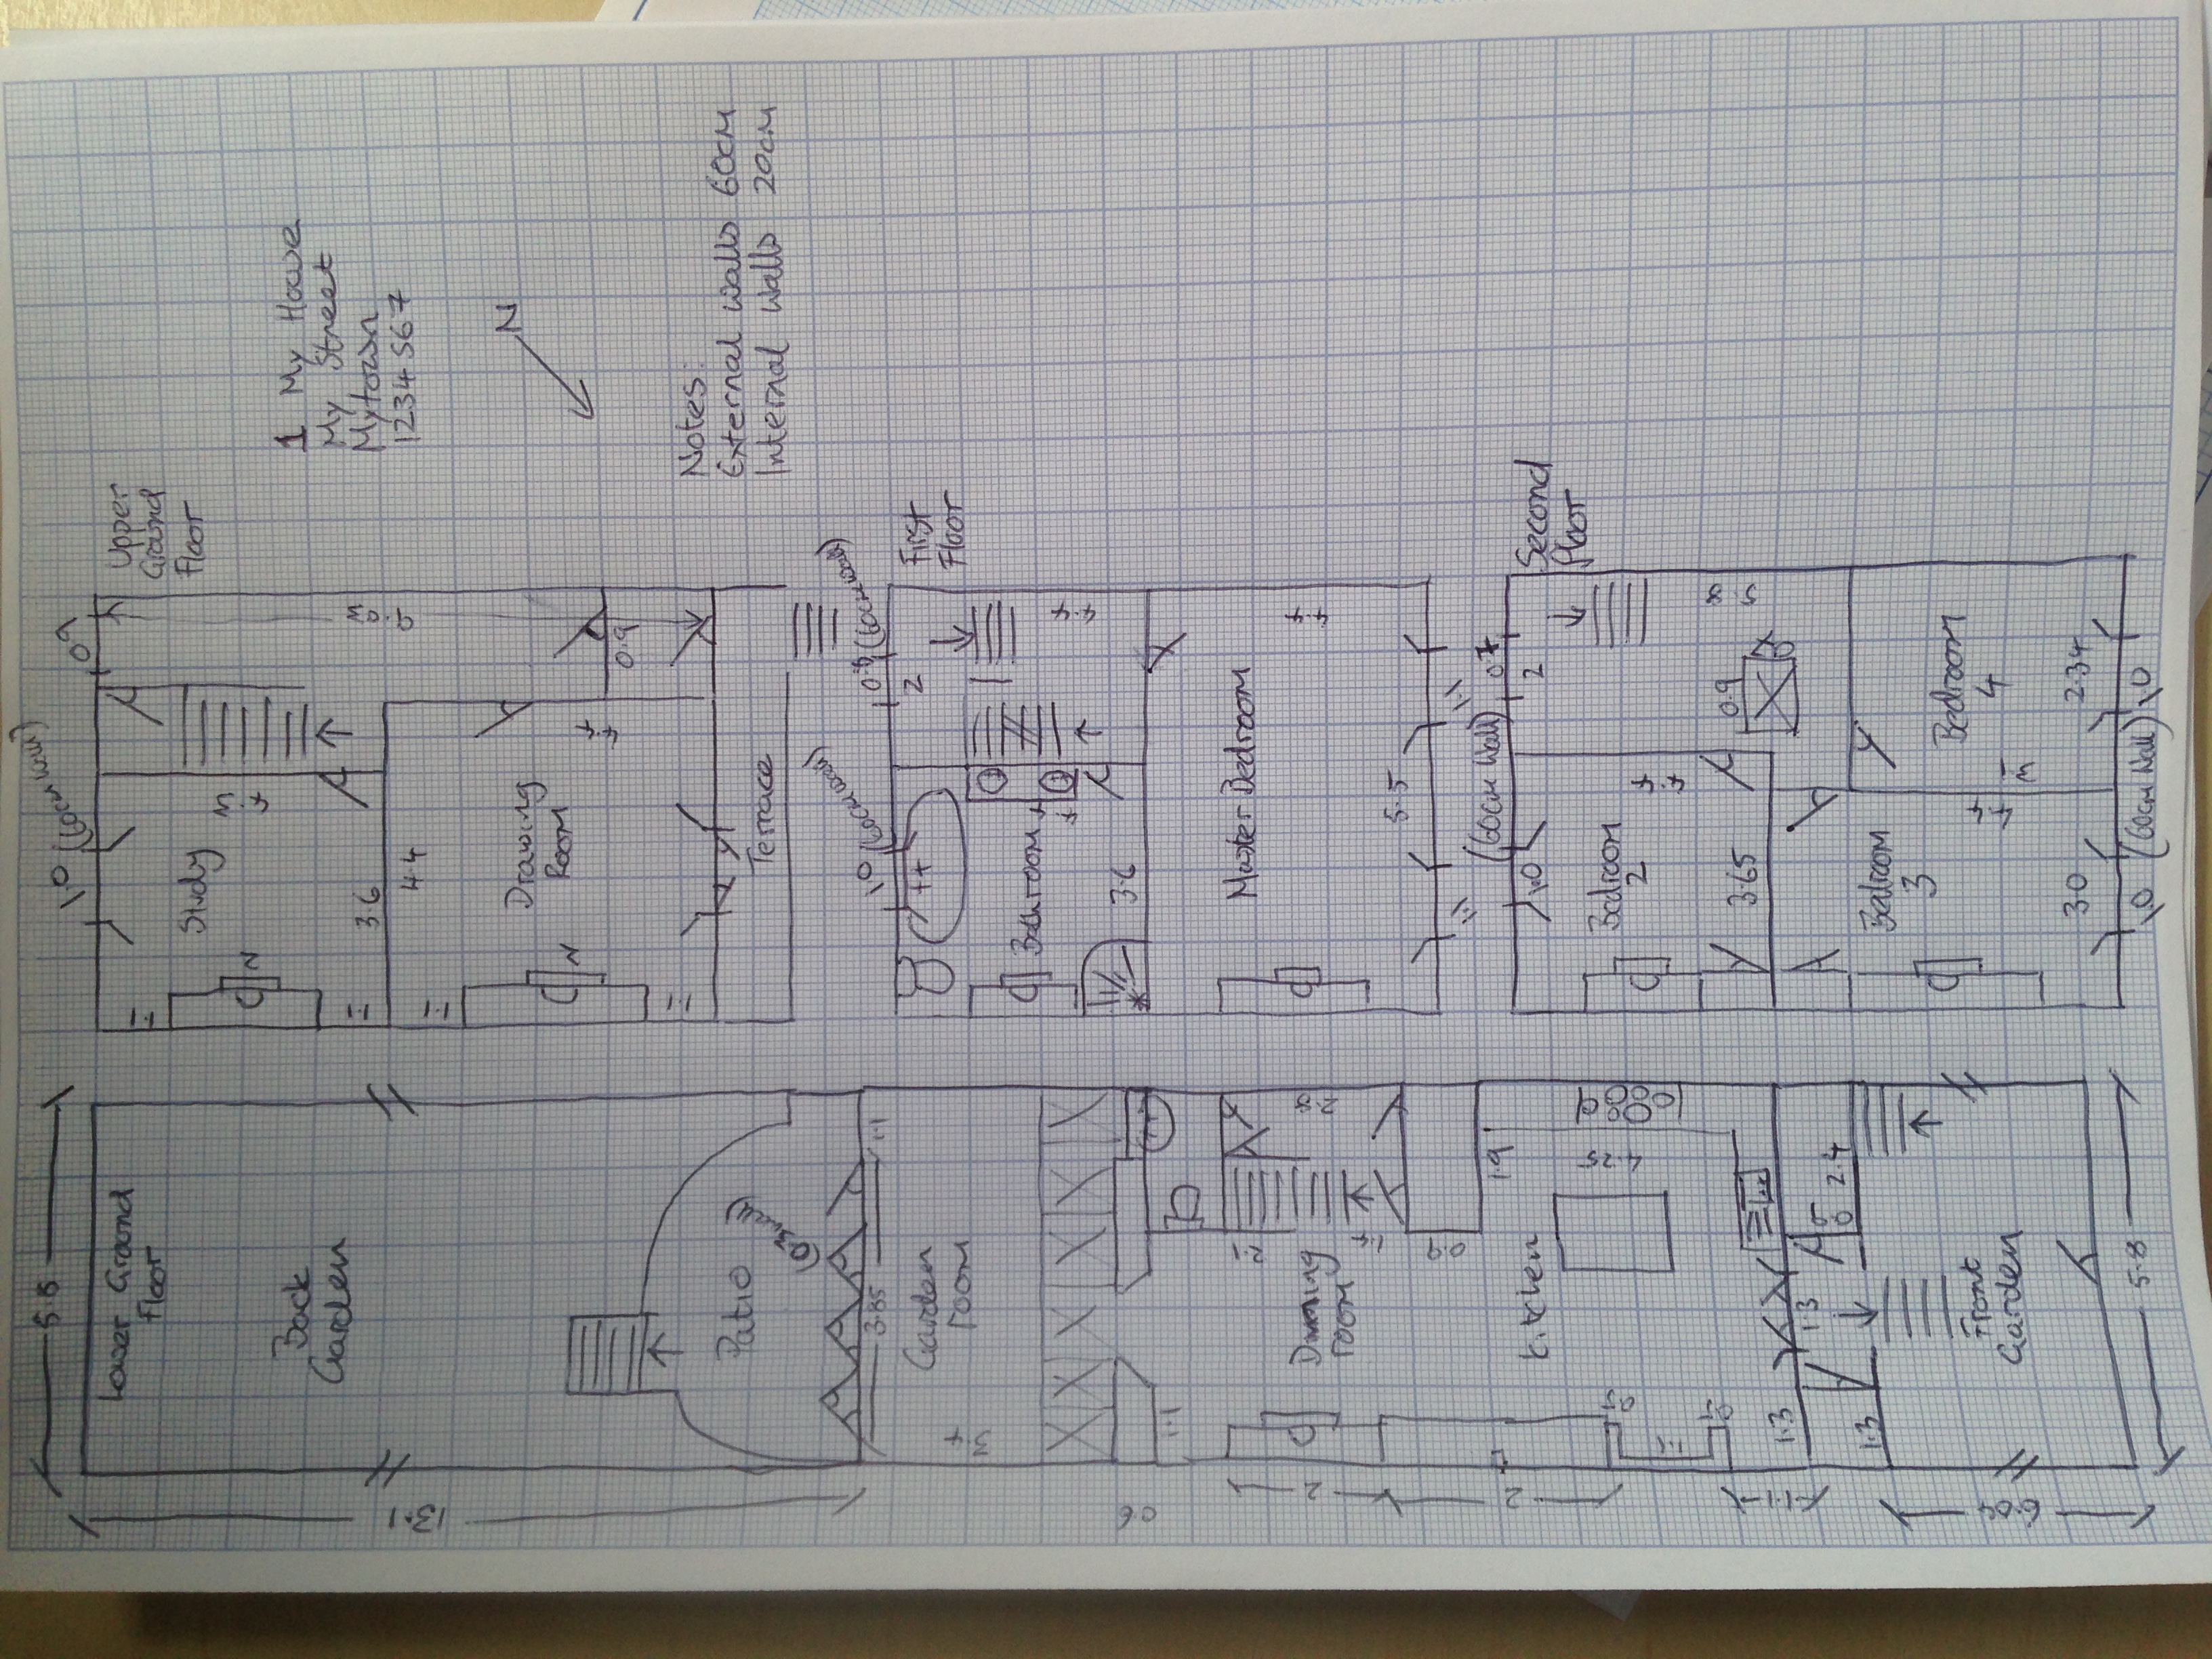 Lower Ground
Floor
5.8
Back
Garden
13.1
Patio
1.1
3.85
Garden
room
3.7
0.6
1.1
2.8
Dining
room
1.2
1.7
0.9
2
1.9
4.25
Kitchen
2
1.0
1.0
1.1
1.3
1.3
0.9
2.4
1.1
1.3
Front
Garden
6.04
5.8
Upper
Ground
Floor
1.0 (60cm wall)
Study
3.6
1.1
2
1.1
4.4
0.9
Drawing
Room
4.4
1.1
2
1.1
Terrace
First
Floor
1.0 (60cm wall)
0.8 (60cm wall)
2
4.4
Bathroom
3.6
Master Bedroom
4.4
5.5
1.1
1.1
Second
Floor
(60cm wall)
0.7
2
1.0
5.8
Bedroom
2
4.4
3.65
0.9
Bedroom
3
4.4
3.0
Bedroom
4
2.34
1.0 (60cm wall) 1.0
1 My House
My Street
Mytown
1234567
N
Notes:
External walls 60cm
Internal walls 20cm